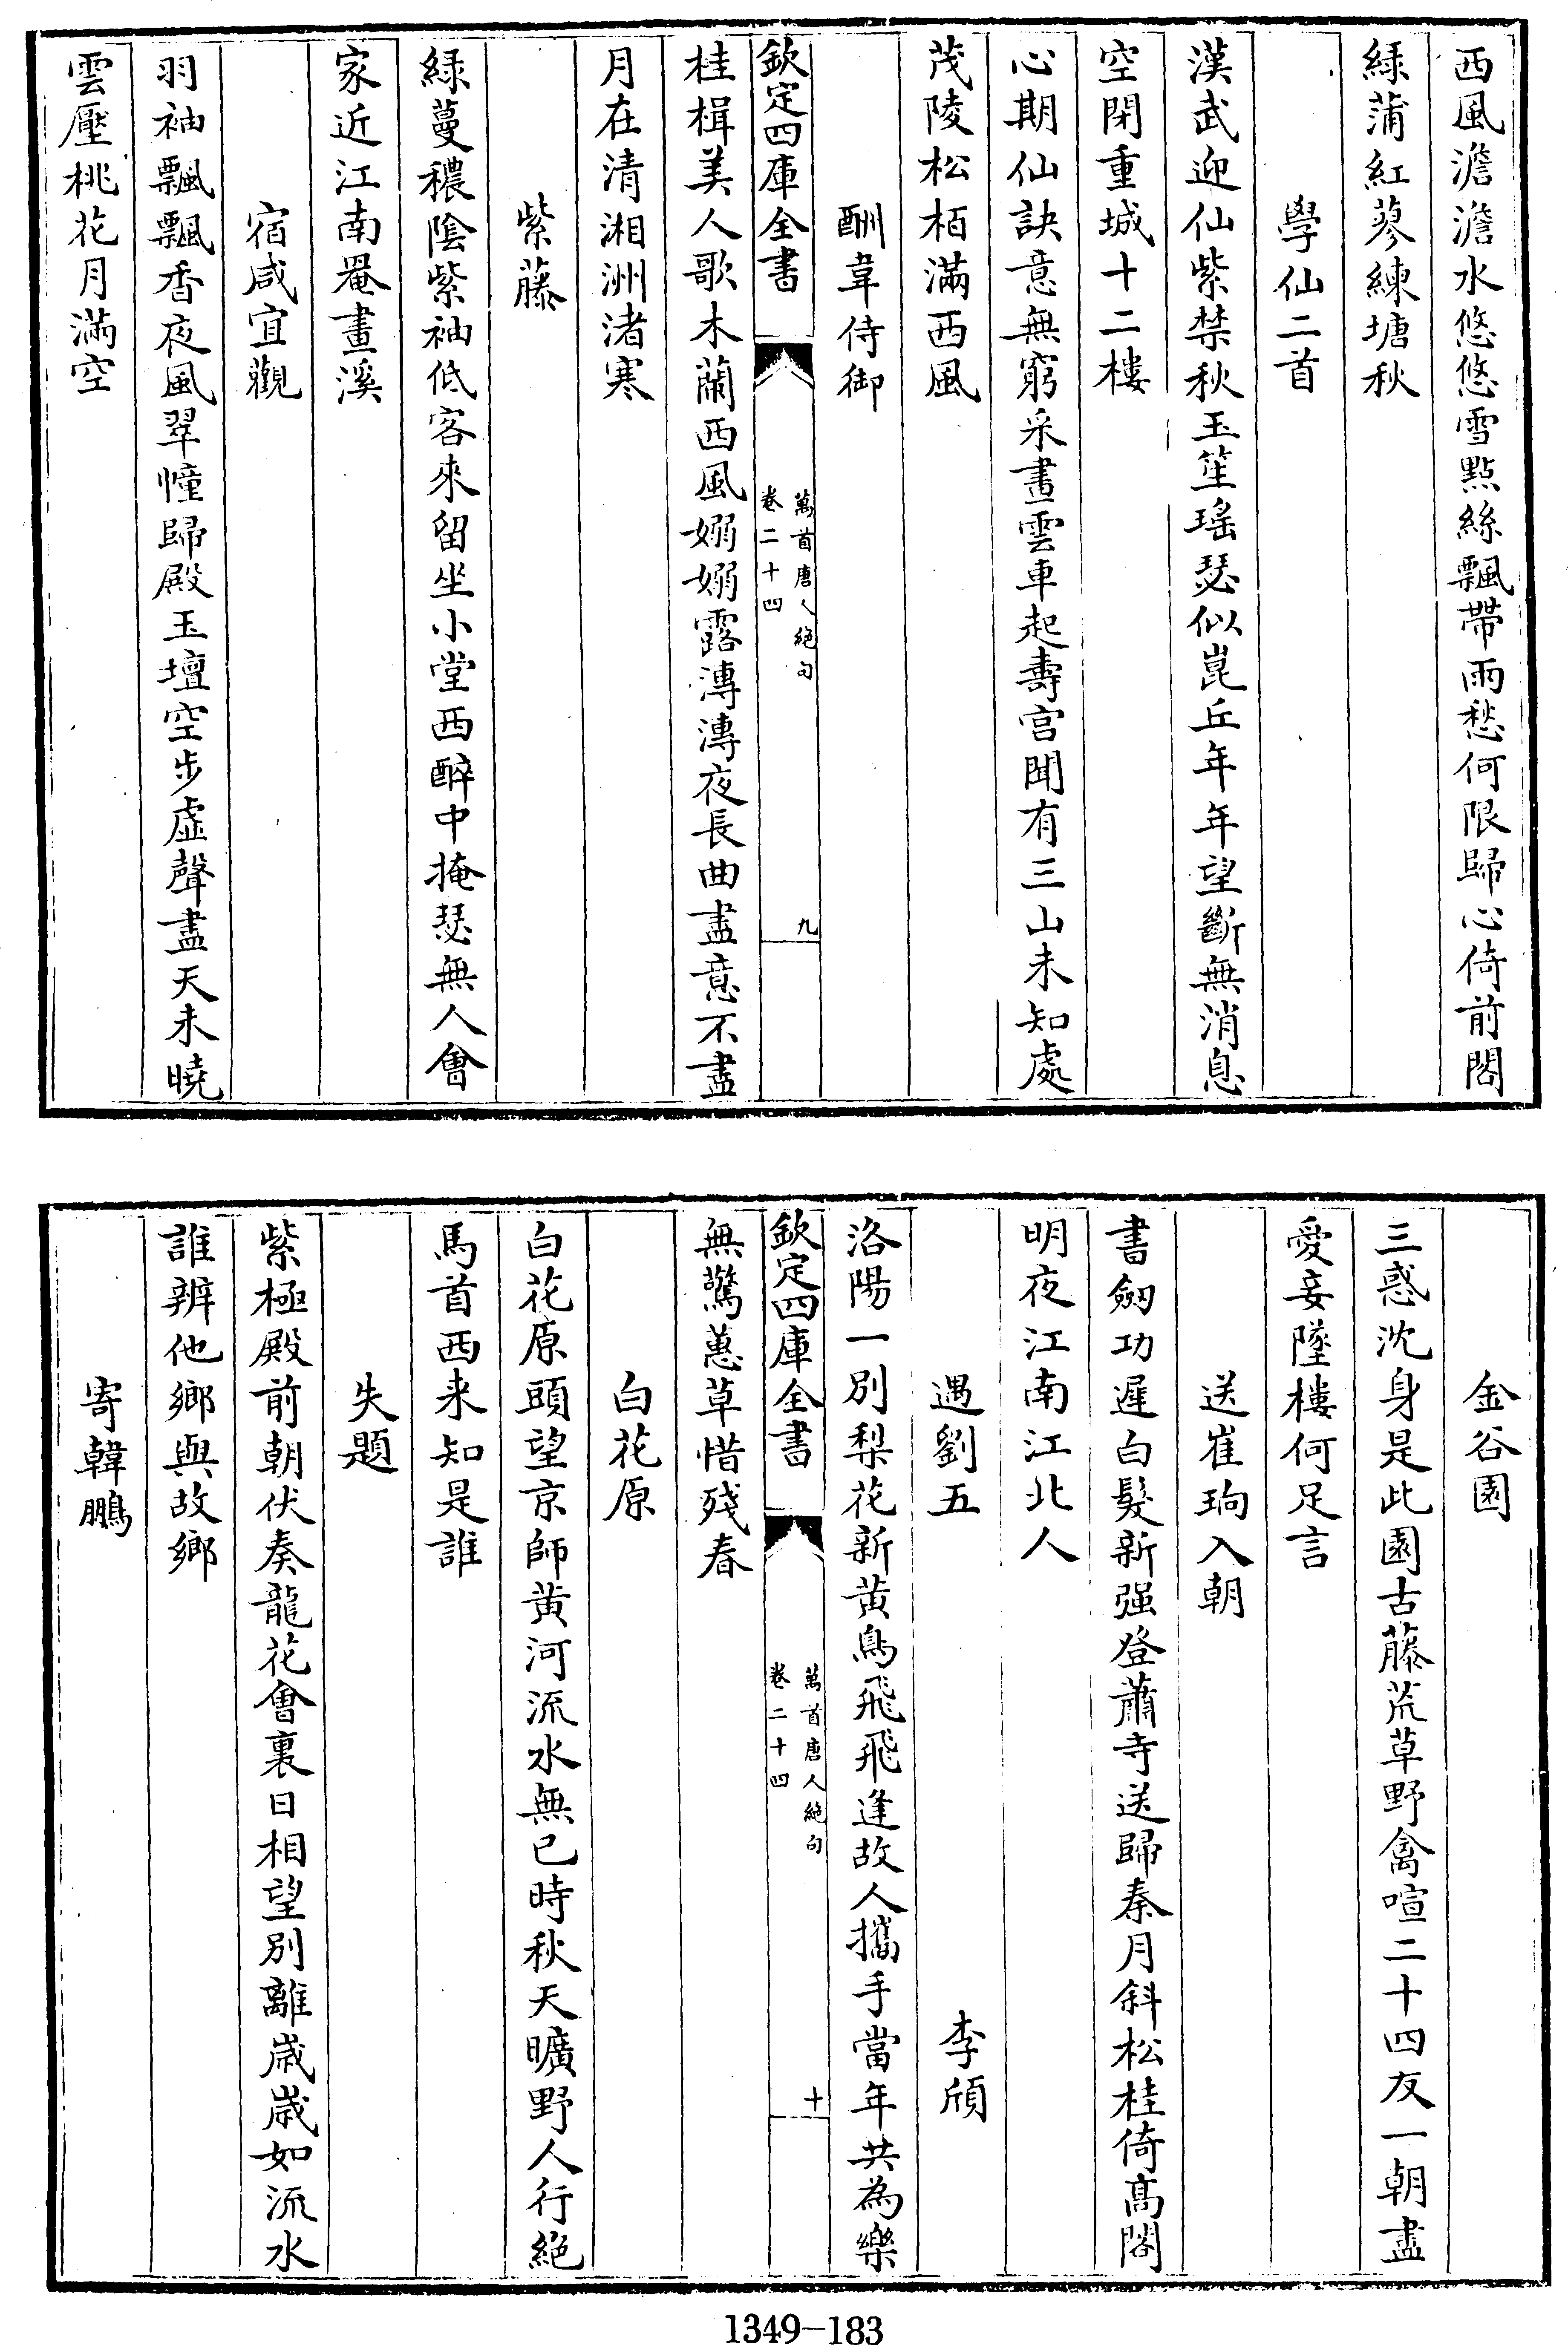 西風澹澹水悠悠雪點絲飄帶雨愁何限歸心倚前閣
緑蒲紅蓼練塘秋
學仙二首
漢武迎仙紫禁秋玉笙瑤瑟似崑丘年年望斷無消息
空閉重城十二樓
心期仙訣意無窮采畫雲車起壽宫聞有三山未知處
茂陵松栢滿西風
酬韋侍御
欽定四庫全書
萬首唐人絶句
卷二十四
九
桂楫美人歌木蘭西風嫋嫋露漙漙夜長曲盡意不盡
月在清湘洲渚寒
紫藤
緑蔓穠陰紫袖低客來留坐小堂西醉中掩瑟無人會
家近江南罨畫溪
宿咸宜觀
羽袖飄飄香夜風翠幢歸殿玉壇空步虚聲盡天未曉
雲壓桃花月滿空
金谷園
三惑沈身是此園古藤荒草野禽喧二十四友一朝盡
愛妾墜樓何足言
送崔珦入朝
書劒功遲白髮新强登蕭寺送歸秦月斜松桂倚髙閣
明夜江南江北人
遇劉五
李頎
洛陽一別梨花新黄鳥飛飛逢故人攜手當年共為樂
欽定四庫全書
萬首唐人絶句
卷二十四
十
無驚蕙草惜殘春
白花原
白花原頭望京師黄河流水無已時秋天曠野人行絶
馬首西来知是誰
失題
紫極殿前朝伏奏龍花會裏日相望別離歳歳如流水
誰辨他鄉與故鄉
寄韓鵬
1349-183